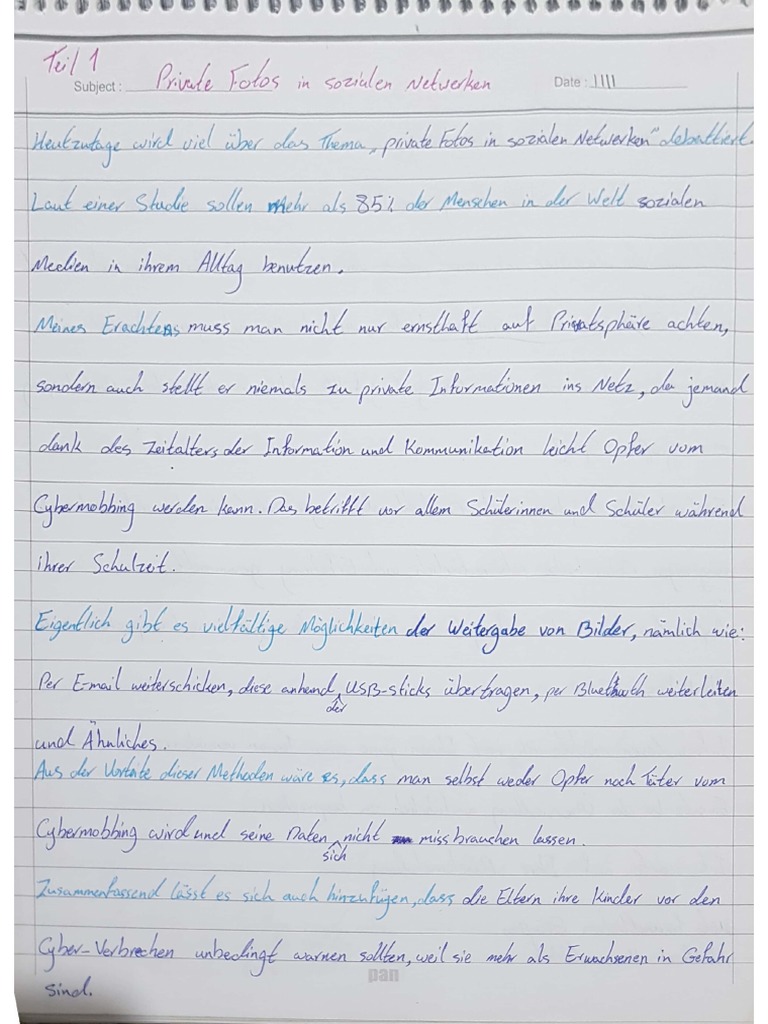 Teil 1
Subject: Private Fotos in sozialen Netwerken Date: ||||
Heutzutage wird viel über das Thema „private Fotos in sozialen Netwerken" debattiert.
Laut einer Studie sollen mehr als 85% der Menschen in der Welt sozialen
Medien in ihrem Alltag benutzen.
Meines Erachtens muss man nicht nur ernsthaft auf Privatsphäre achten,
sondern auch stellt er niemals zu private Informationen ins Netz, da jemand
dank des Zeitalters der Information und Kommunikation leicht Opfer vom
Cybermobbing werden kann. Das betrifft vor allem Schülerinnen und Schüler während
ihrer Schulzeit.
Eigentlich gibt es vielfältige Möglichkeiten der Weitergabe von Bilder, nämlich wie:
Per E-mail weiterschicken, diese anhand der USB-sticks übertragen, per Bluethuth weiterleiten
und Ähnliches.
Aus der Vorteile dieser Methoden wäre es, dass man selbst weder Opfer noch Täter vom
Cybermobbing wird und seine Daten sich nicht missbrauchen lassen.
Zusammenfassend lässt es sich auch hinzufügen, dass die Eltern ihre Kinder vor den
Cyber-Verbrechen unbedingt warnen sollten, weil sie mehr als Erwachsenen in Gefahr
sind.
pan